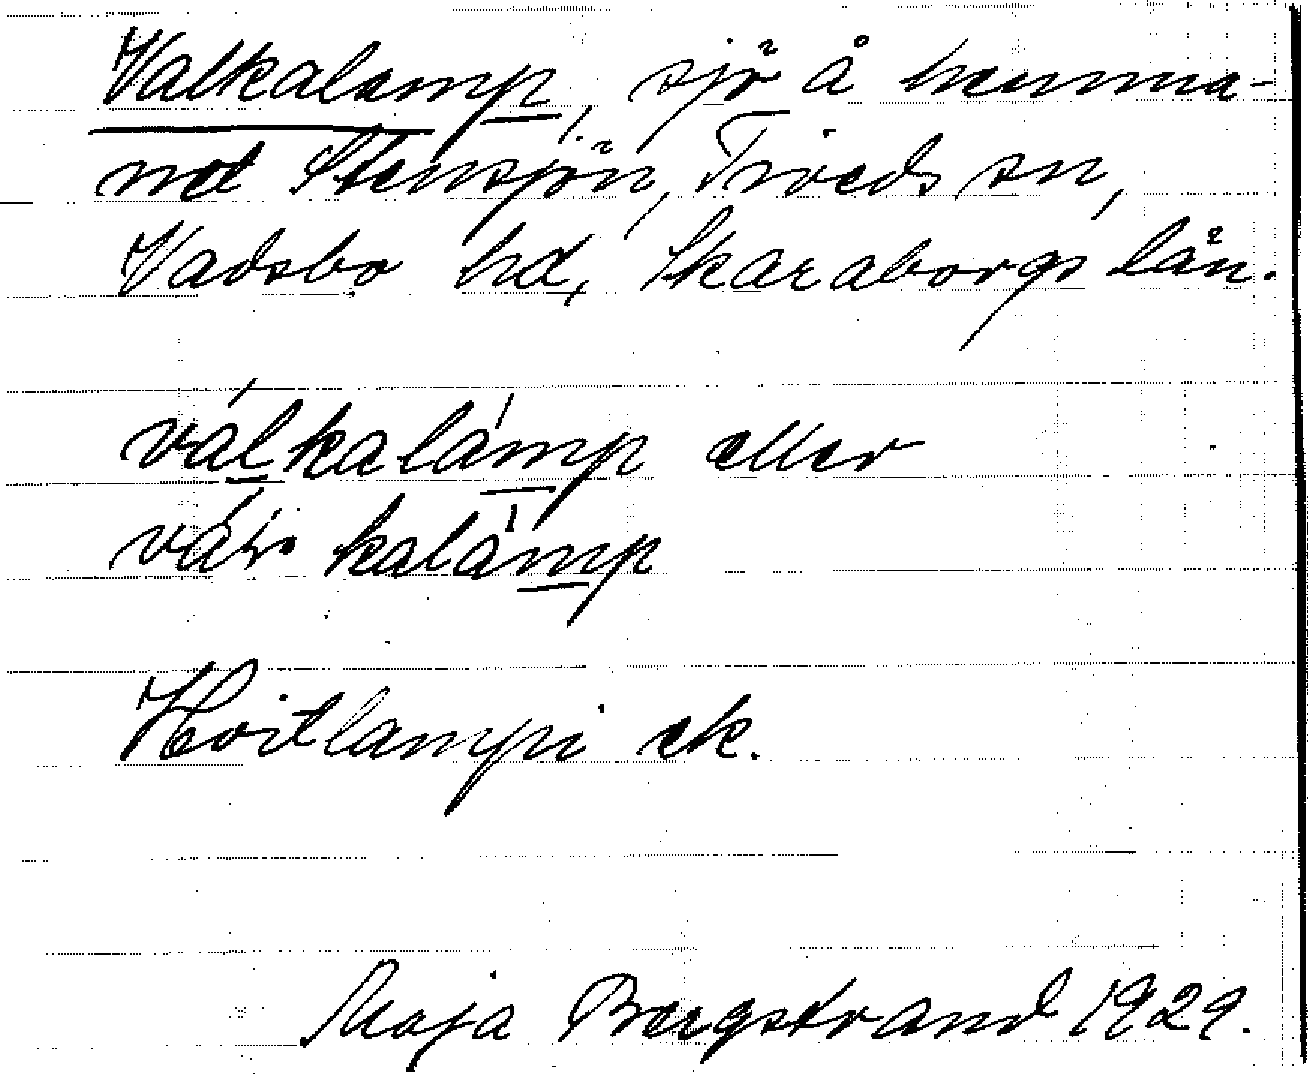 Valkalamp, sjö å hemma-
net Stensjön, Tiveds sn,
Vadsbo hd, Skaraborgs län.
válkalámp eller
kalámp
Hvitlampi ek.
Maja Bergstrand 1929.